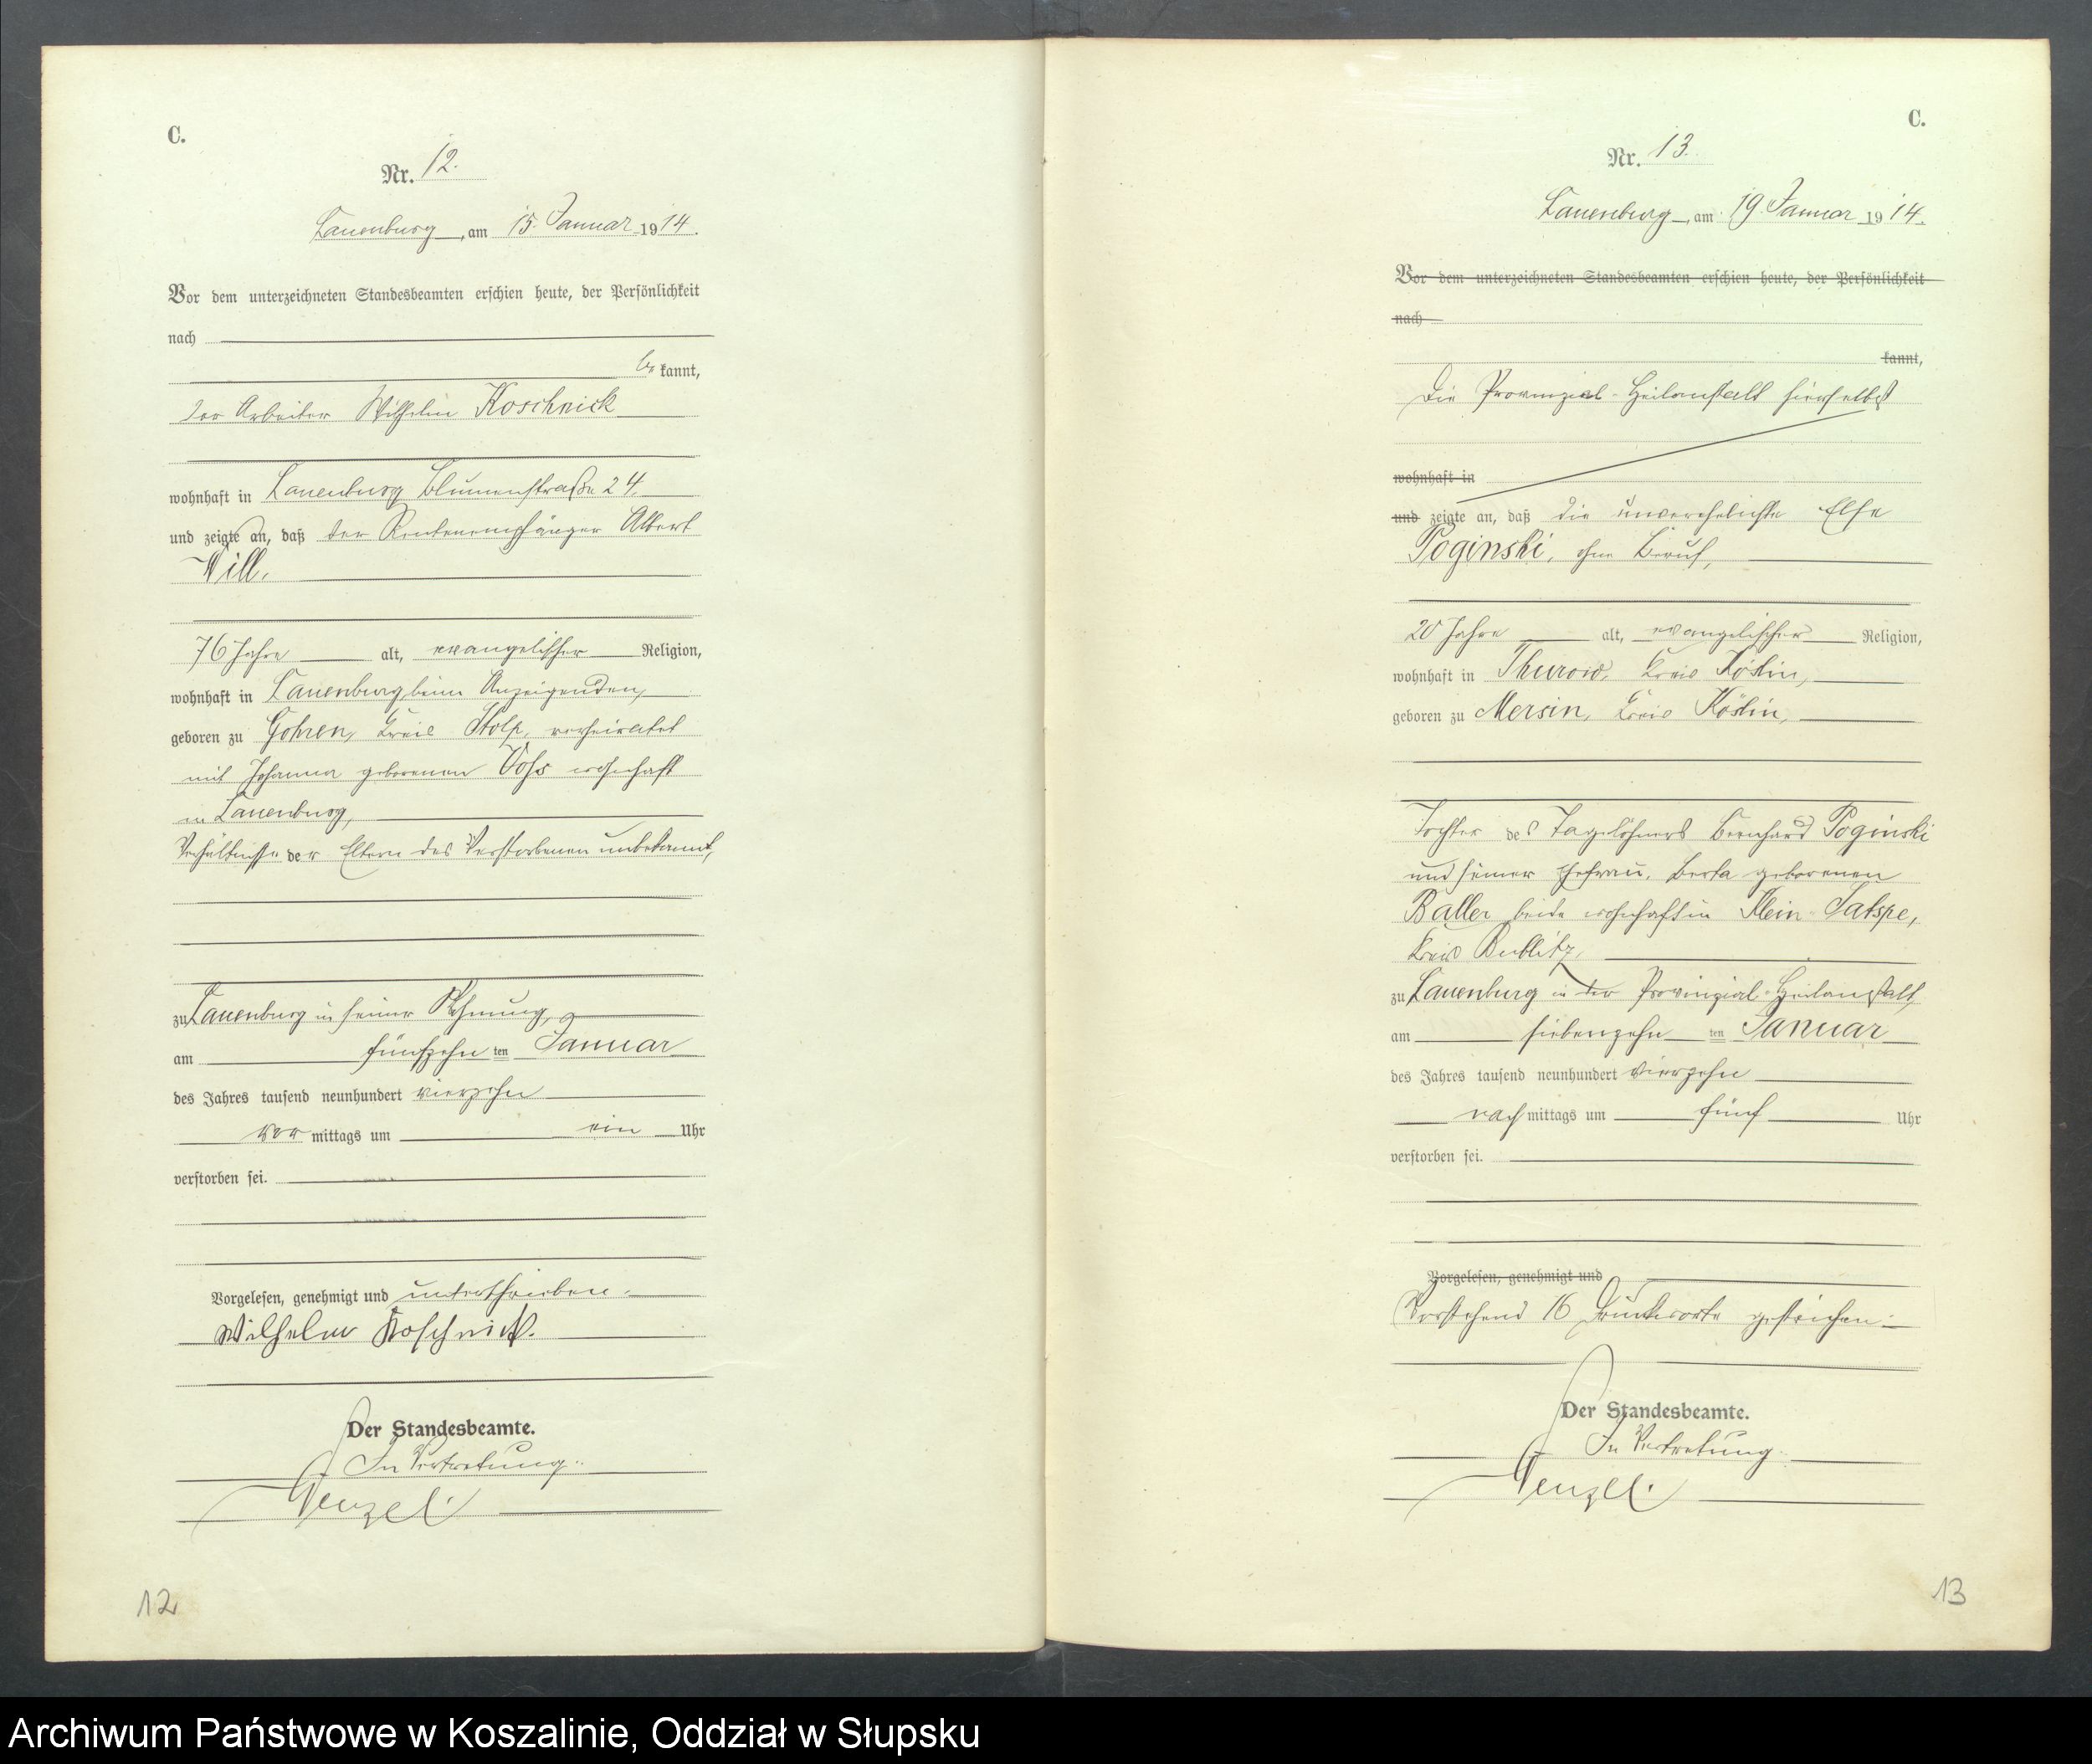 C.
Nr. 12.
Lauenburg, am 15. Januar 1914.
Vor dem unterzeichneten Standesbeamten erschien heute, der Persönlichkeit
nach
be kannt,
der Arbeiter Wilhelm Koschnick
wohnhaft in Lauenburg Blumenstraße 24.
und zeigte an, daß der Rentenempfänger Albert
Will,
76 Jahre alt, evangelischer Religion,
wohnhaft in Lauenburg beim Anzeigenden,
geboren zu Gohren, Kreis Stolp, verheiratet
mit Johanna geborenen Voss wohnhaft
in Lauenburg,
Verhältnisse der Eltern des Verstorbenen unbekannt,
zu Lauenburg in seiner Wohnung,
am fünfzehn ten Januar
des Jahres tausend neunhundert vierzehn
vor mittags um ein Uhr
verstorben sei.
Vorgelesen, genehmigt und unterschrieben.
Wilhelm Koschnick.
Der Standesbeamte.
In Vertretung.
Wenzel.
12
C.
Nr. 13.
Lauenburg, am 19. Januar 1914.
Vor dem unterzeichneten Standesbeamten erschien heute, der Persönlichkeit
nach
kannt,
Die Provinzial-Heilanstalt hierselbst
wohnhaft in
und zeigte an, daß die unverehelichte Else
Poginski, ohne Beruf,
20 Jahre alt, evangelischer Religion,
wohnhaft in Thurow, Kreis Köslin,
geboren zu Mersin, Kreis Köslin,
Tochter des Tagelöhners Bernhard Poginski
und seiner Ehefrau, Berta geborenen
Baller beide wohnhaft in Klein-Satspe,
Kreis Bublitz,
zu Lauenburg in der Provinzial-Heilanstalt,
am siebenzehn ten Januar
des Jahres tausend neunhundert vierzehn
nach mittags um fünf Uhr
verstorben sei.
Vorgelesen, genehmigt und
Vorstehend 16 Druckworte gestrichen.
Der Standesbeamte.
In Vertretung.
Wenzel.
13
Archiwum Państwowe w Koszalinie, Oddział w Słupsku